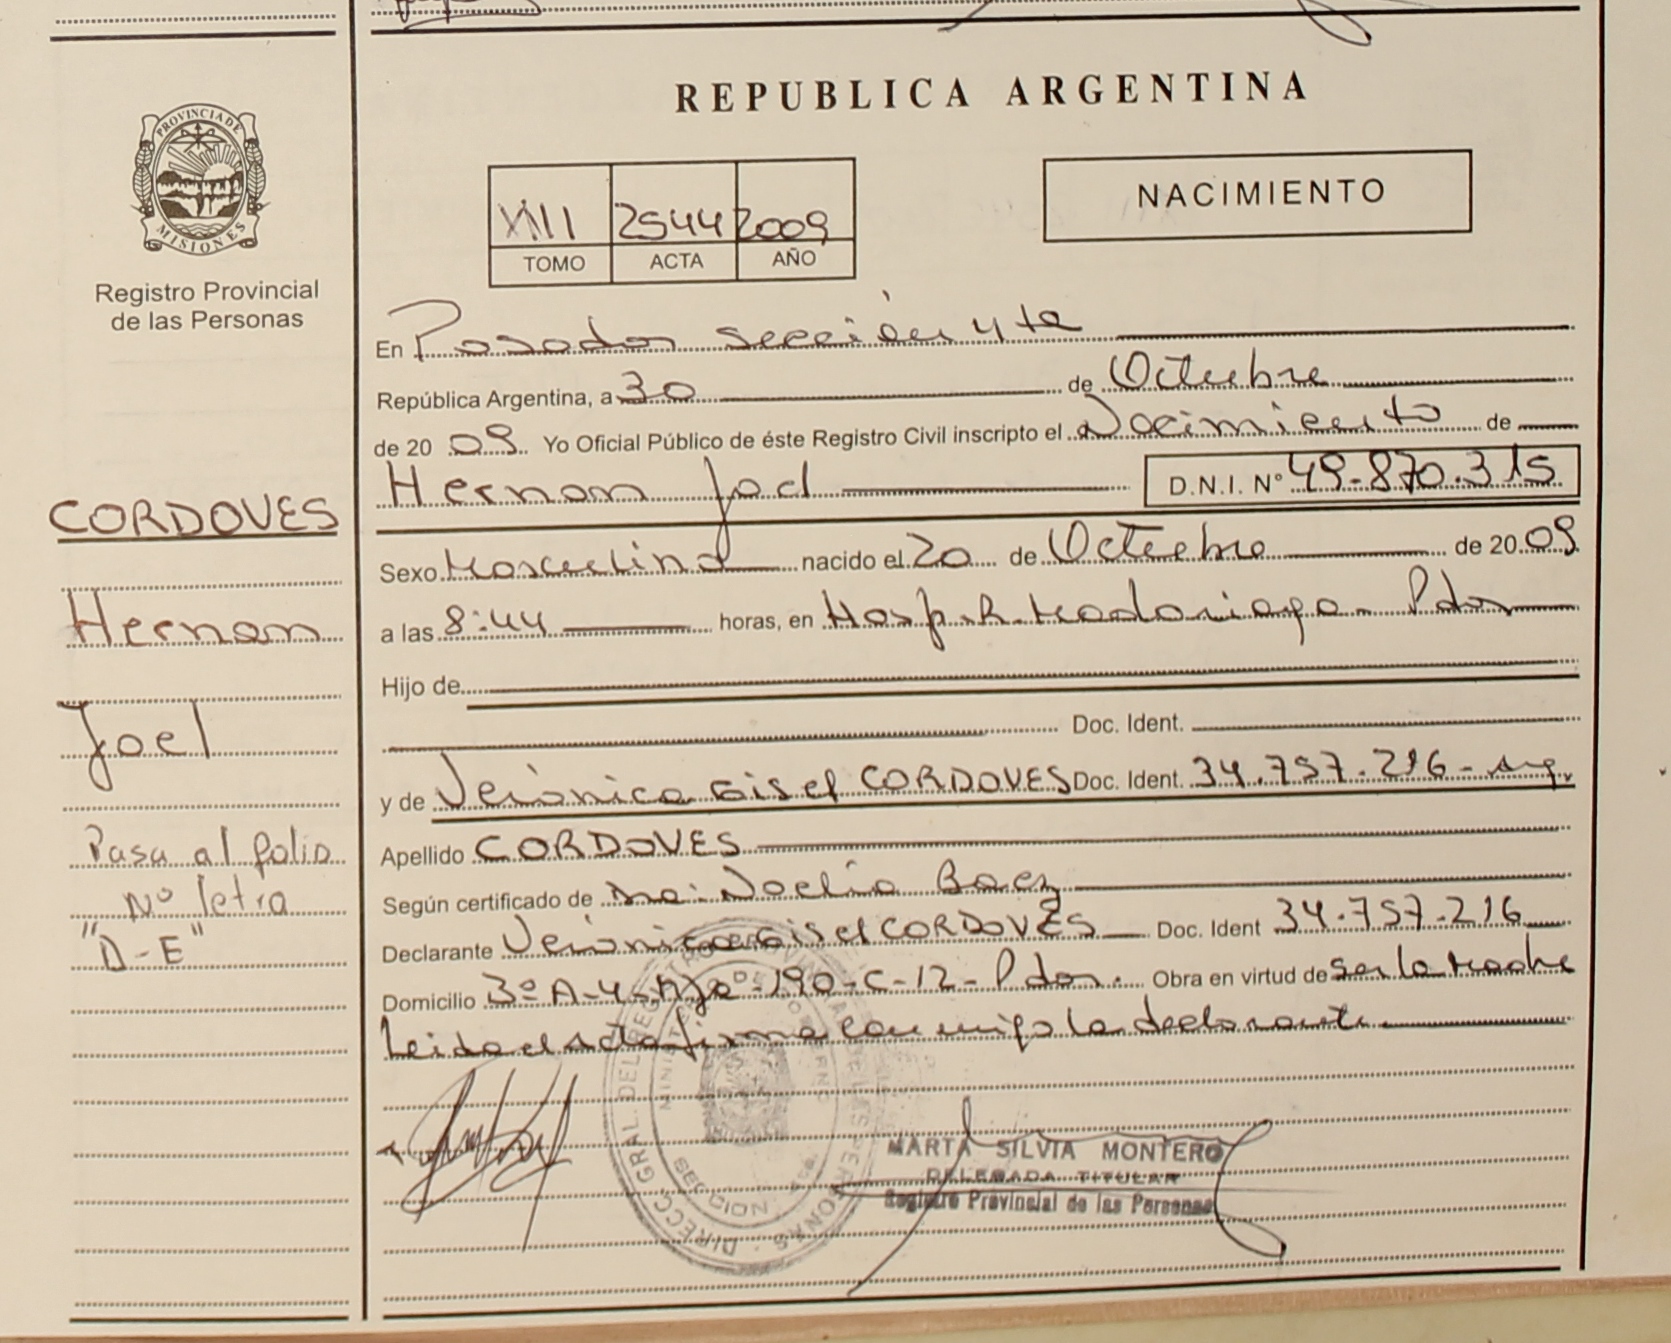 REPUBLICA ARGENTINA
PROVINCIA DE
MISIONES
Registro Provincial
de las Personas
XIII 2544 2009
TOMO ACTA AÑO
NACIMIENTO
En Posadas sección 4ta
República Argentina, a 30 de Octubre
de 20 09 Yo Oficial Público de éste Registro Civil inscripto el Nacimiento de
Hernan Joel D.N.I. Nº 49.870.315
Sexo Masculino nacido el 20 de Octubre de 20 09
a las 8:44 horas, en Hosp. R. Madariaga - Pdas
Hijo de
Doc. Ident.
y de Verónica Gisel CORDOVES Doc. Ident. 34.757.216 - Arg.
Apellido CORDOVES
Según certificado de Dra. Noelia Baez
Declarante Verónica Gisel CORDOVES Doc. Ident 34.757.216
Domicilio 3º A-4- 190-C-12- Pdas. Obra en virtud de Ser la Madre
Leida el Acta firma conmigo la declarante
CORDOVES
Hernan
Joel
Pasa al folio
Nº letra
"D-E"
DIRECC. GRAL. DEL REGISTRO PROVINCIAL DE LAS PERSONAS
SECCION 4ta.
MARTA SILVIA MONTERO
DELEGADA TITULAR
Registro Provincial de las Personas